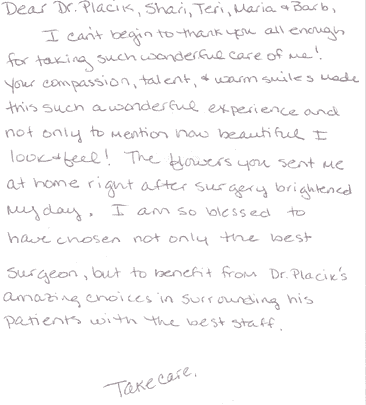 Dear Dr. Placik, Shari, Teri, Maria & Barb,
I can't begin to thank you all enough
for taking such wonderful care of me!
Your compassion, talent, & warm smiles made
this such a wonderful experience and
not only to mention how beautiful I
look & feel! The flowers you sent me
at home right after surgery brightened
my day. I am so blessed to
have chosen not only the best
surgeon, but to benefit from Dr. Placik's
amazing choices in surrounding his
patients with the best staff.
Take care,